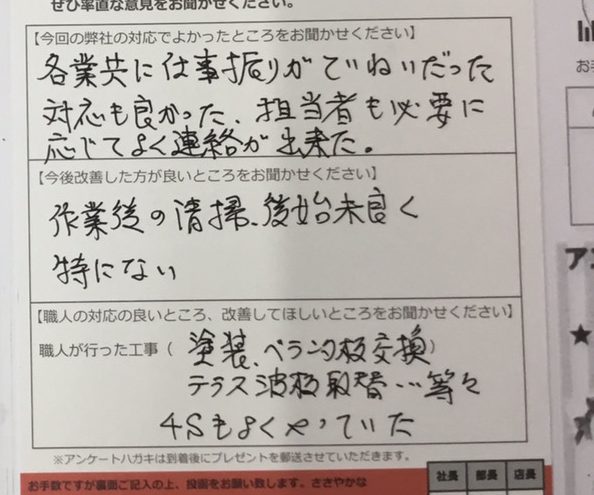 ぜひ率直な意見をお聞かせください。
【今回の弊社の対応でよかったところをお聞かせください】
各業共に仕事振りがていねいだった
対応も良かった、担当者も必要に
応じてよく連絡が出来た。
【今後改善した方が良いところをお聞かせください】
作業後の清掃、後始末良く
特にない
【職人の対応の良いところ、改善してほしいところをお聞かせください】
職人が行った工事( 塗装、ベランダ板交換)
テラス波板取替…等々
4Sもよくやっていた
※アンケートハガキは到着後にプレゼントを郵送させていただきます。
お手数ですが裏面ご記入の上、投函をお願い致します。ささやかな
社長 部長 店長
お手
アン
★